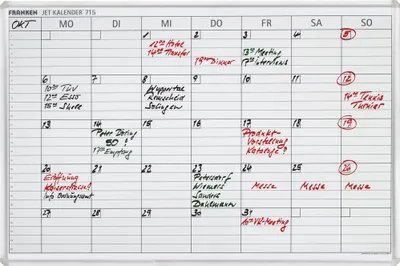 FRANKEN JET KALENDER 715
OKT MO DI MI DO FR SA SO
1 2 3 4 5
12°° Hotel
14°° Transfer
19°° Dinner
13°° Meeting
17°° Interviews
6 7 8 9 10 11 12
10°° TÜV
12°° Esso
15°° Shell
Wuppertal
Remscheid
Solingen
14°° Tennis
Turnier
13 14 15 16 17 18 19
Peter Döring
50 ?
17°° Empfang
Produkt-
Vorstellung
Kataloge?
20 21 22 23 24 25 26
Eröffnung
Kaiserstrasse?
Info
Petersdorf
Niemers
Sanders
Dahlmann
Messe Messe Messe
27 28 29 30 31
10°° VK-Meeting